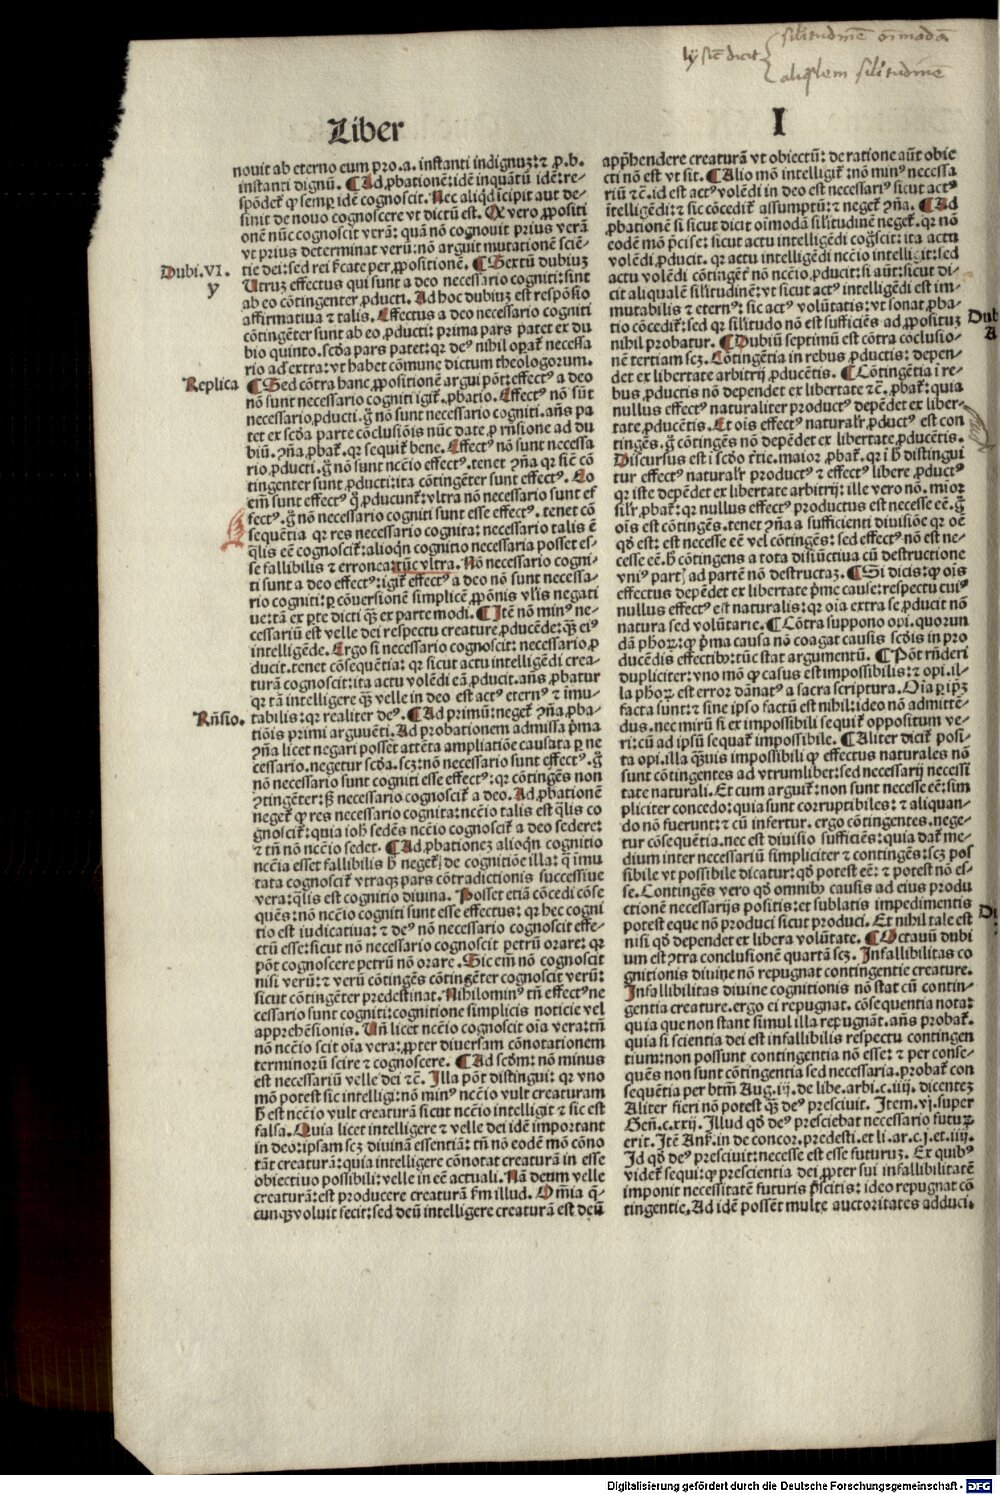 silitudinē oīmodā
aliqualem silitudinē
Liber
I
nouit ab eterno eum pro.a. instanti indignuz:⁊ ꝓ.b.
instanti dignū. ¶ Ad ꝓbationē: idē inquātū idē: re-
spōdet ꝙ semꝑ idē cognoscit. Nec aliqd īcipit aut de-
sinit de nouo cognoscere vt dictū est. Et vero ꝓpositi
onē nūc cognoscit verā: quā nō cognouit prius verā
vt prius determinat verū: nō arguit mutationē sciē-
tie dei: sed rei ſcate per ꝓpositionē. ¶ Sextū dubiuz
Dubi.VI.
y
Utruz effectus qui sunt a deo necessario cogniti: sint
ab eo cōtingenter ꝓducti. Ad hoc dubiuz est respōsio
affirmatiua ⁊ talis. Effectus a deo necessario cogniti
cōtingēter sunt ab eo ꝓducti: prima pars patet ex du
bio quinto. scda pars patet: qr deꝰ nihil opat necessa
rio ad extra: vt habet cōmune dictum theologorum.
Replica
¶ Sed cōtra hanc ꝓpositionē argui pōt: effectꝰ a deo
nō sunt necessario cogniti igit. ꝓbatio. Effectꝰ nō sūt
necessario ꝓducti. g̃ nō sunt necessario cogniti. añs pa
tet ex scda parte cōclusiōis nūc date ꝓ rñsione ad du
biū. ꝯña ꝓbat. qr sequit bene. Effectꝰ nō sunt necessa
rio ꝓducti. g̃ nō sunt ncēio effectꝰ. tenet ꝯña qr sic cō
tingenter sunt ꝓducti: ita cōtingēter sunt effectꝰ. Eo
em̄ sunt effectꝰ q̄ ꝓducunt: vltra nō necessario sunt ef
fectꝰ. g̃ nō necessario cogniti sunt esse effectꝰ. tenet cō
sequētia qr res necessario cognita: necessario talis ē
qlis eē cognoscit: alioqn cognitio necessaria posset es-
se fallibilis ⁊ erronea: tūc vltra. Nō necessario cogni-
ti sunt a deo effectꝰ: igit effectꝰ a deo nō sunt necessa-
rio cogniti: ꝑ cōuersionē simplicē ꝓpōnis vlis negati
ue: tā ex ꝑte dicti qꝫ ex parte modi. ¶ Itē nō minꝰ ne-
cessariū est velle dei respectu creature ꝓducēde: qꝫ eiꝰ
intelligēde. Ergo si necessario cognoscit: necessario ꝓ
ducit. tenet cōsequētia: qr sicut actu intelligēdi crea-
turā cognoscit: ita actu volēdi eā ꝓducit. añs ꝓbatur
qr tā intelligere qꝫ velle in deo est actꝰ eternꝰ ⁊ īmu-
Rñsio.
tabilis: qr realiter deꝰ. ¶ Ad primū: neget ꝯña ꝓba-
tiōis primi arguuēti. Ad probationem admissa p̄ma
ꝯña licet negari posset attēta ampliatiōe causata ꝑ ne
cessario. negetur scda. scz: nō necessario sunt effectꝰ. g̃
nō necessario sunt cogniti esse effectꝰ: qr cōtingēs non
ꝯtingēter: sꝫ necessario cognoscit a deo. Ad ꝓbationē
neget ꝙ res necessario cognita: ncēio talis est qlis co
gnoscit: quia ioh sedēs ncēio cognoscit a deo sedere:
⁊ tñ nō ncēio sedet. ¶ Ad ꝓbationez alioqn cognitio
ncēia esset fallibilis h̄ neget de cognitiōe illa: q̄ īmu
tata cognoscit vtraqꝫ pars cōtradictionis successiue
vera: qlis est cognitio diuina. Posset etiā cōcedi cōse
quēs: nō ncēio cogniti sunt esse effectus: qr hec cogni
tio est iudicatiua: ⁊ deꝰ nō necessario cognoscit effe-
ctū esse: sicut nō necessario cognoscit petrū orare: qr
pōt cognoscere petrū nō orare. Sic em̄ nō cognoscit
nisi verū: ⁊ verū cōtingēs cōtingēter cognoscit verū:
sicut cōtingēter predestinat. Nihilominꝰ tñ effectꝰ ne
cessario sunt cogniti: cognitione simplicis noticie vel
apprehēsionis. Uñ licet ncēio cognoscit oīa vera: tñ
nō ncēio scit oīa vera: ꝓpter diuersam cōnotationem
terminorū scire ⁊ cognoscere. ¶ Ad scdm: nō minus
est necessariū velle dei ⁊cē. Illa pōt distingui: qr vno
mō potest sic intelligi: nō minꝰ ncēio vult creaturam
h̄ est ncēio vult creaturā sicut ncēio intelligit ⁊ sic est
falsa. Quia licet intelligere ⁊ velle dei idē important
in deo: ipsam scz diuinā essentiā: tñ nō eodē mō cōno
tāt creaturā: quia intelligere cōnotat creaturā in esse
obiectiuo possibili: velle in eē actuali. Nā deum velle
creaturā: est producere creaturā ſm illud. Om̄ia q̄-
cunqꝫ voluit fecit: sed deū intelligere creaturā est deū
app̄hendere creaturā vt obiectū: de ratione aūt obie
cti nō est vt sit. ¶ Alio mō intelligit: nō minꝰ necessa
riū ⁊cē. id est actꝰ volēdi in deo est necessariꝰ sicut actꝰ
ītelligēdi: ⁊ sic cōcedit assumptū: ⁊ neget ꝯña. ¶ Ad
ꝓbationē si sicut dicit oīmodā silitudinē neget. qr nō
eodē mō p̄cise: sicut actu intelligēdi cogscit: ita actu
volēdi ꝓducit. qr actu intelligēdi ncēio intelligit: sed
actu volēdi cōtingēt nō ncēio ꝓducit: si aūt: sicut di-
cit aliqualē silitudinē: vt sicut actꝰ intelligēdi est im-
mutabilis ⁊ eternꝰ: sic actꝰ volūtatis: vt sonat ꝓba-
tio cōcedit: sed qr silitudo nō est sufficiēs ad ꝓposituz
Dub
nihil probatur. ¶ Dubiū septimū est cōtra cōclusio-
nē tertiam scz. Cōtingētia in rebus ꝓductis: depen-
det ex libertate arbitrij ꝓducētis. ¶ Cōtingētia ī re-
bus ꝓductis nō dependet ex libertate ⁊cē. ꝓbat: quia
nullus effectꝰ naturaliter productꝰ depēdet ex liber-
tate ꝓducētis. Et oīs effectꝰ naturalr ꝓductꝰ est con
tingēs. g̃ cōtingēs nō depēdet ex libertate ꝓducētis.
Discursus est ī scdo ſtie. maior ꝓbat. qr ī h̄ distingui
tur effectꝰ naturalr productꝰ ⁊ effectꝰ libere ꝓductꝰ
qr iste depēdet ex libertate arbitrij: ille vero nō. mīor
silr ꝓbat: qr nullus effectꝰ productus est necesse eē. g̃
oīs est cōtingēs. tenet ꝯña a sufficienti diuisiōe qr oē
qd est: est necesse eē vel cōtingēs: sed effectꝰ nō est ne-
cesse eē. h̄ cōtingens a tota disiūctiua cū destructione
vniꝰ partꝭ ad partē nō destructaz. ¶ Si dicis: ꝙ oīs
effectus depēdet ex libertate p̄me cause: respectu cuiꝰ
nullus effectꝰ est naturalis: qr oīa extra se ꝓducit nō
natura sed volūtarie. ¶ Cōtra suppono opi. quorun
dā phoꝝ: ꝙ p̄ma causa nō coagat causis scdis in pro
ducēdis effectibꝰ: tūc stat argumentū. ¶ Pōt rñderi
dupliciter: vno mō ꝙ casus est impossibilis: ⁊ opi. il-
la phoꝝ est error dānatꝰ a sacra scriptura. Oīa ꝑ ipꝫ
facta sunt: ⁊ sine ipso factū est nihil: ideo nō admittē-
dus. nec mirū si ex impossibili sequit oppositum ve-
ri: cū ad ipsū sequat impossibile. ¶ Aliter dicit posi-
ta opi. illa qꝫuis impossibili ꝙ effectus naturales nō
sunt cōtingentes ad vtrumlibet: sed necessarij necessi
tate naturali. Et cum arguit: non sunt necesse eē: sim
pliciter concedo: quia sunt corruptibiles: ⁊ aliquan-
do nō fuerunt: ⁊ cū infertur. ergo cōtingentes. nege-
tur cōsequētia. nec est diuisio sufficiēs: quia dat me-
dium inter necessariū simpliciter ⁊ contingēs: scz pos
sibile vt possibile dicatur: qd potest eē: ⁊ potest nō es-
se. Contingēs vero qd omnibꝰ causis ad eius produ
ctionē necessarijs positis: et sublatis impedimentis
potest eque nō produci sicut produci. Et nihil tale est
nisi qd dependet ex libera volūtate. ¶ Octauū dubi
um est ꝯtra conclusionē quartā scz. Infallibilitas co
gnitionis diuine nō repugnat contingentie creature.
Infallibilitas diuine cognitionis nō stat cū contin-
gentia creature. ergo ei repugnat. cōsequentia nota:
quia que non stant simul illa repugnāt. añs probat.
quia si scientia dei est infallibilis respectu contingen
tium: non possunt contingentia nō esse: ⁊ per conse-
quēs non sunt cōtingentia sed necessaria. probat con
sequētia per btm̄ Aug. ij. de libe. arbi. c. iij. dicentez
Aliter fieri nō potest qꝫ deꝰ presciuit. Item. vj. super
Geñ. c. xxij. Illud qd deꝰ presciebat necessario futuꝝ
erit. Itē Anſ. in de concor. predesti. et li. ar. c. j. et. iij.
Id qd deꝰ presciuit: necesse est esse futuruz. Ex quibꝰ
videt sequi: ꝙ prescientia dei ꝓpter sui infallibilitatē
imponit necessitatē futuris p̄scitis: ideo repugnat cō
tingentie. Ad idē possēt multe auctoritates adduci.
Digitalisierung gefördert durch die Deutsche Forschungsgemeinschaft - DFG